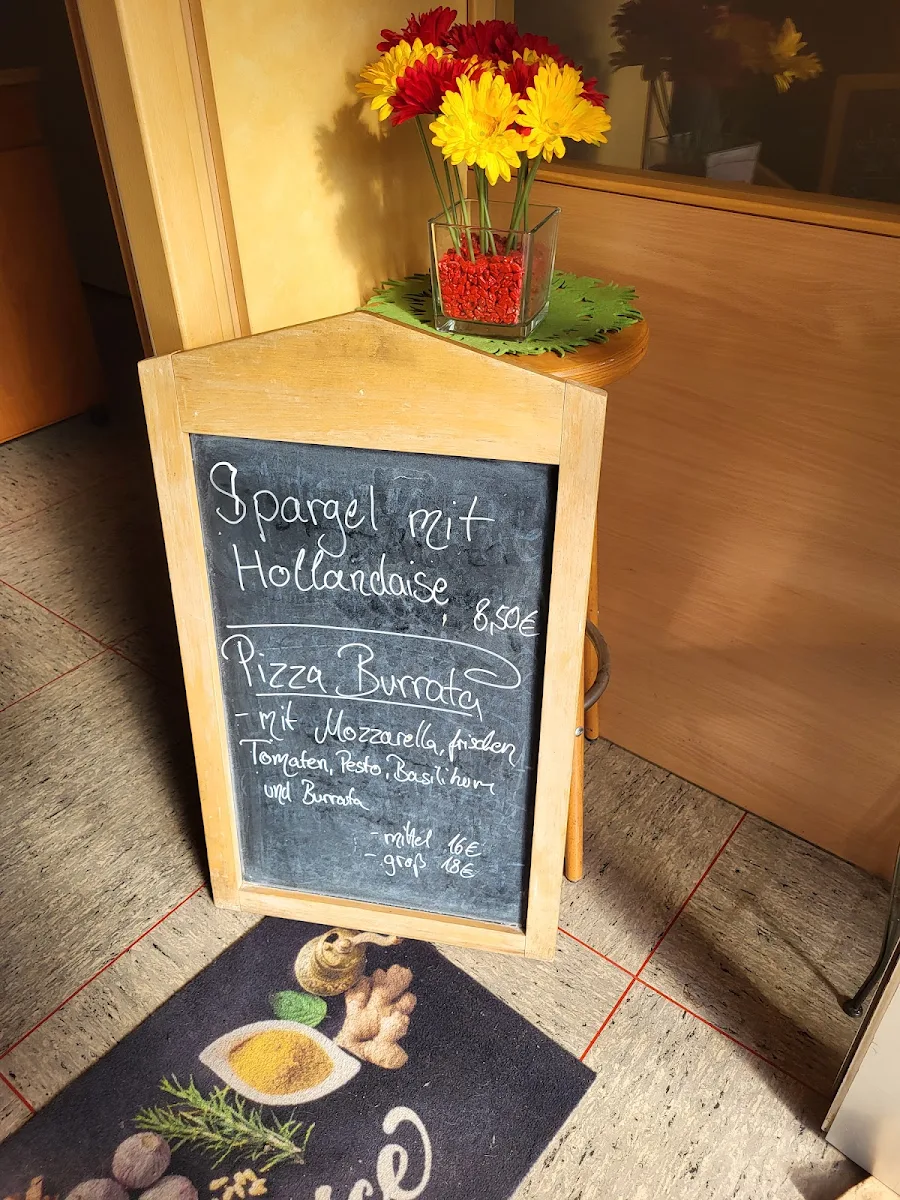 Spargel mit
Hollandaise, 8,50€
Pizza Burrata
- mit Mozzarella, frischen
Tomaten, Pesto, Basilikum
und Burrata
- mittel 16€
- groß 18€